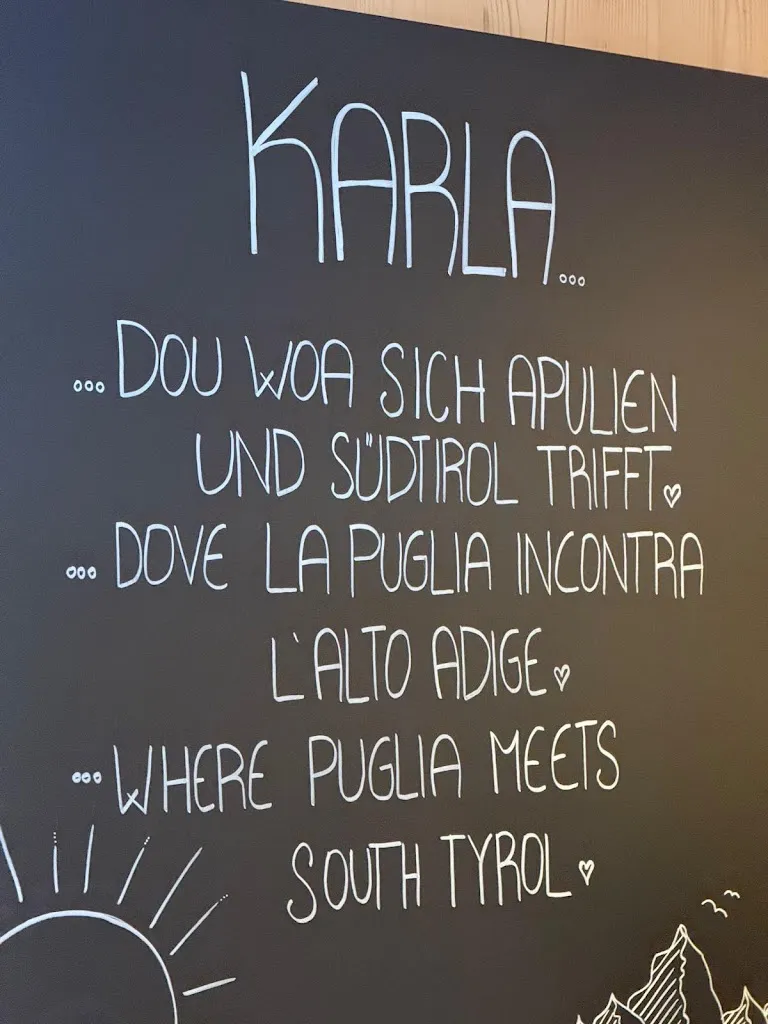 KARLA...
...DOU WOA SICH APULIEN
UND SÜDTIROL TRIFFT♥
...DOVE LA PUGLIA INCONTRA
L'ALTO ADIGE♥
...WHERE PUGLIA MEETS
SOUTH TYROL♥